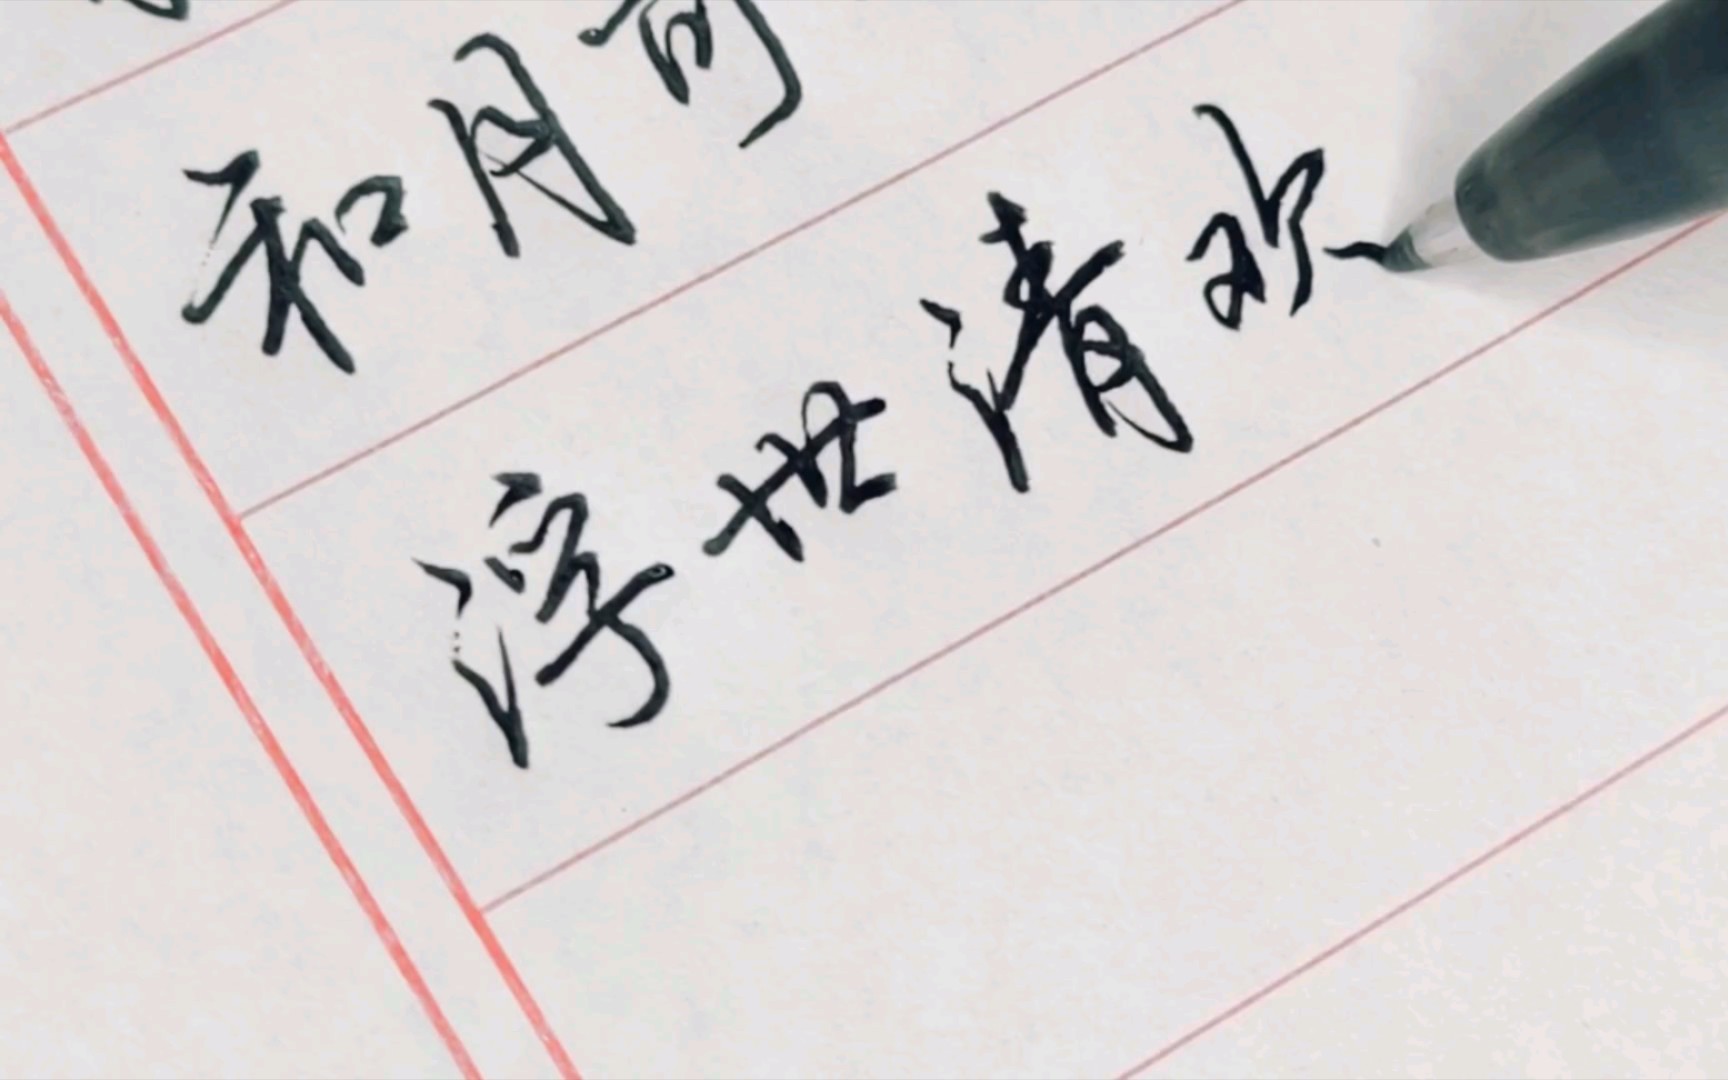 和月
浮世清欢